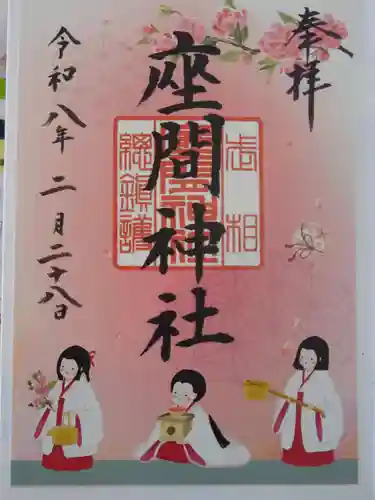 奉拝
座間神社
相武
座間神社
總鎮護
令和八年二月二十八日